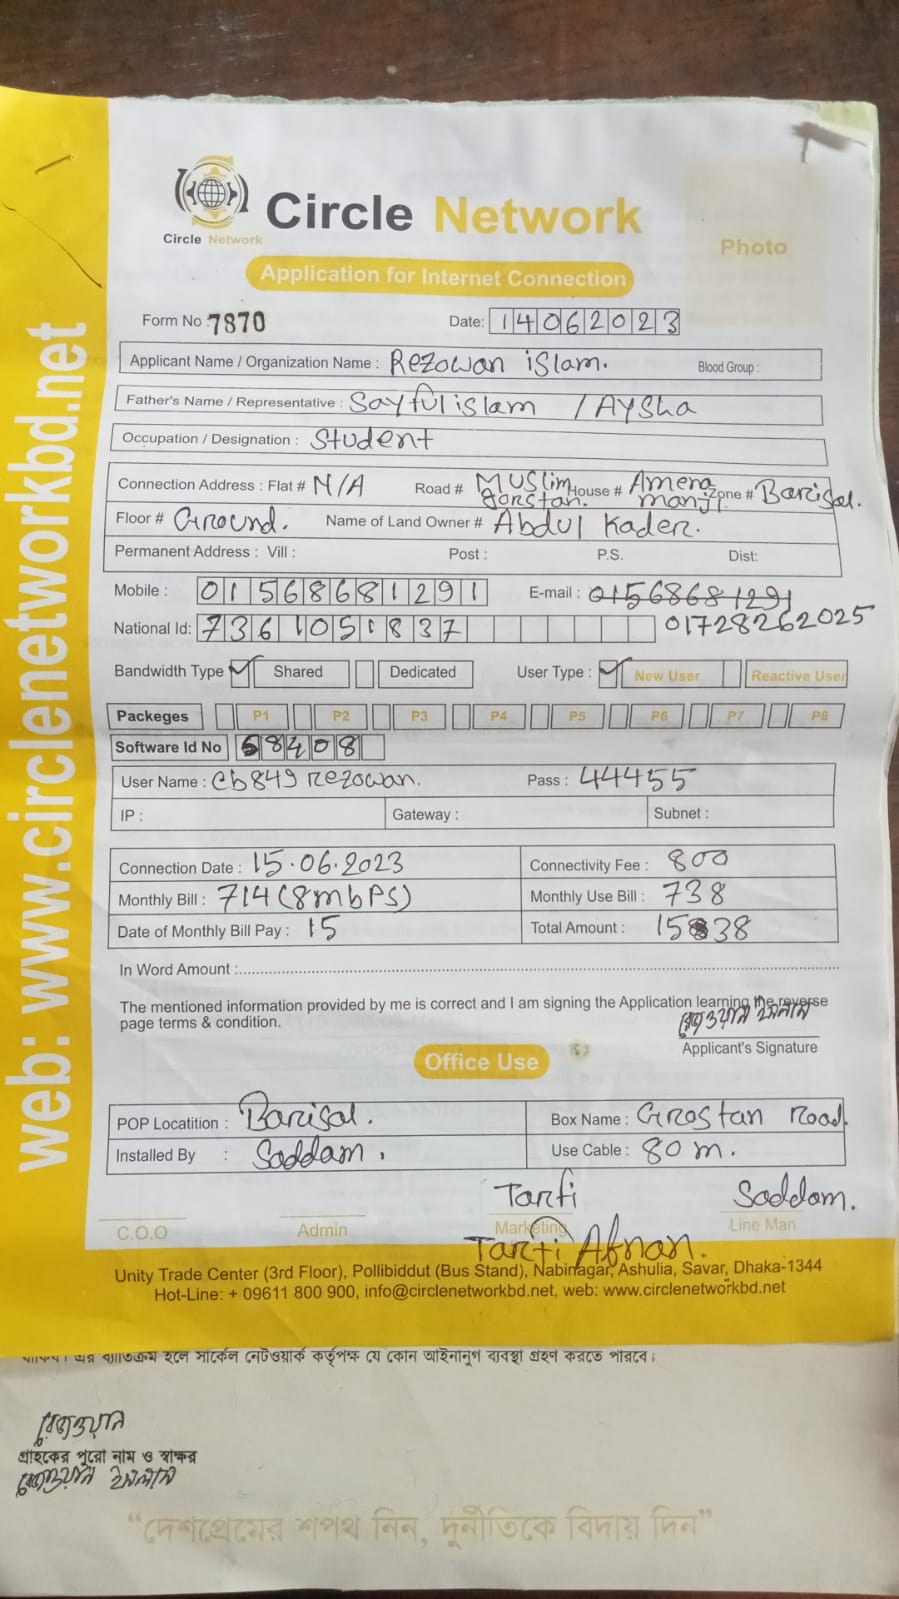 Circle Network
Circle Network
Photo
Application for Internet Connection
Form No : 7870 Date: 14062023
Applicant Name / Organization Name : Rezowan islam. Blood Group :
Father's Name / Representative : Sayful islam / Aysha
Occupation / Designation : Student
Connection Address : Flat # N/A Road # Muslim gorstan. House # Amena manjil. Zone # Barisal.
Floor # Ground. Name of Land Owner # Abdul Kader.
Permanent Address : Vill : Post : P.S. Dist:
Mobile : 01568681291 E-mail : 01568681291
National Id: 7361051837 01728262025
Bandwidth Type Shared Dedicated User Type : New User Reactive User
Packeges P1 P2 P3 P4 P5 P6 P7 P8
Software Id No 58408
User Name : cb849rezowan. Pass : 44455
IP : Gateway : Subnet :
Connection Date : 15.06.2023 Connectivity Fee : 800
Monthly Bill : 714 (8mbps) Monthly Use Bill : 738
Date of Monthly Bill Pay : 15 Total Amount : 1538
In Word Amount :
The mentioned information provided by me is correct and I am signing the Application learning the reverse
page terms & condition.
রেজওয়ান ইসলাম
Applicant's Signature
Office Use
POP Locatition : Barisal. Box Name : Grostan Road.
Installed By : Saddam. Use Cable : 80 m.
Tarfi Saddam.
C.O.O Admin Marketing Line Man
Tarfi Afnan.
Unity Trade Center (3rd Floor), Pollibiddut (Bus Stand), Nabinagar, Ashulia, Savar, Dhaka-1344
Hot-Line: + 09611 800 900, info@circlenetworkbd.net, web: www.circlenetworkbd.net
web: www.circlenetworkbd.net
এর ব্যতিক্রম হলে সার্কেল নেটওয়ার্ক কর্তৃপক্ষ যে কোন আইনানুগ ব্যবস্থা গ্রহণ করতে পারবে।
রেজওয়ান
গ্রাহকের পুরো নাম ও স্বাক্ষর
রেজওয়ান ইসলাম
“দেশপ্রেমের শপথ নিন, দুর্নীতিকে বিদায় দিন”